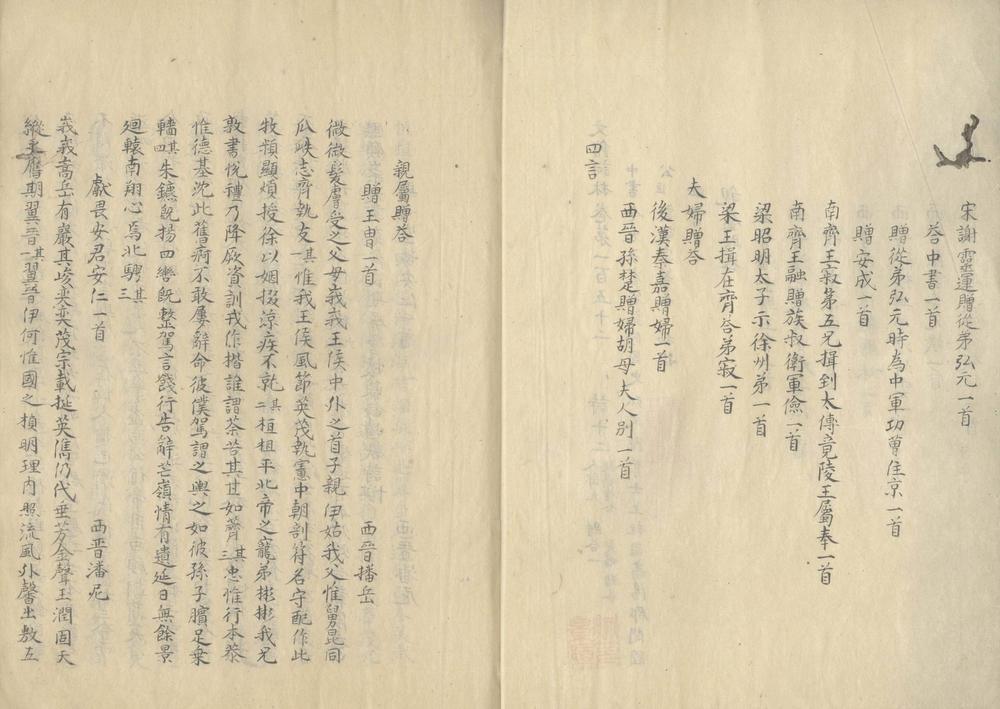 宋謝靈運贈從弟弘元一首
荅中書一首
贈從弟弘元時為中軍功曹住京一首
贈安成一首
南齊王寂第五兄揖到太傅竟陵王屬奉一首
南齊王融贈族叔衛軍儉一首
梁昭明太子示徐州弟一首
梁王揖在齊荅弟寂一首
夫婦贈荅
後漢秦嘉贈婦一首
西晉孫楚贈婦胡母夫人別一首
四言
親屬贈荅
贈王胄一首 西晉播岳
微微髮膚受之父母峩峩王侯中外之首子親伊姑我父惟舅昆同
瓜瓞志齊執友其一惟我王侯風節英茂執憲中朝剖符名守配作此
牧頻顯煩授徐以姻掇涼疾不就其二桓桓平北帝之寵弟彬彬我兄
敦書悅禮乃降厥資訓我作揩誰謂荼苦其甘如薺其三忠惟行本恭
惟德基沈此舊痾不敢屢辭命彼僕駕謂之輿之如彼孫子臏足乗
轓其四朱鑣既揚四轡既整駕言餞行告辭芒嶺情有遺延日無餘景
廻轅南翔心焉北騁其三
獻畏安君安仁一首 西晉潘尼
峩峩嵩岳有巖其峻奕奕茂宗載挺英儁仍代垂芳金聲玉潤固天
縱主膺期翼晉其一翼晉伊何惟國之楨明理內照流風外馨出敷五